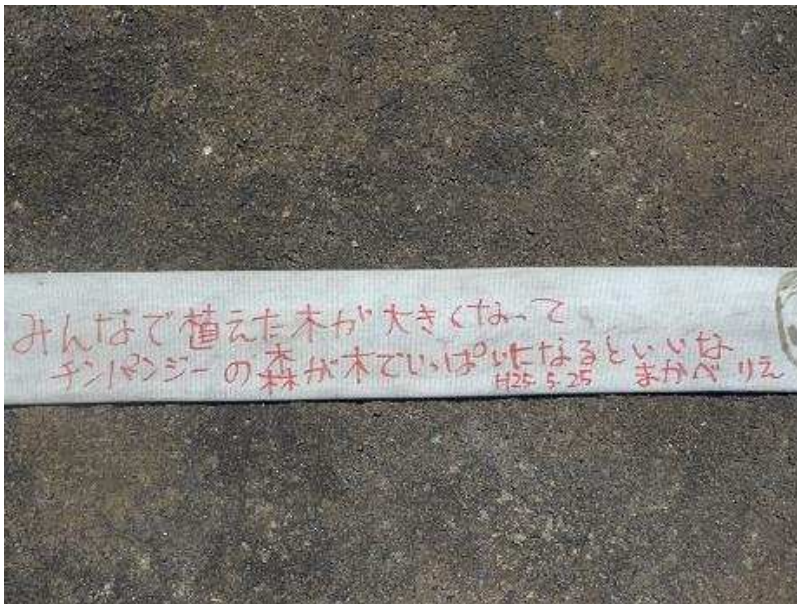 みんなで植えた木が大きくなって
チンパンジーの森が木でいっぱいになるといいな
H25.5.25 まかべりえ